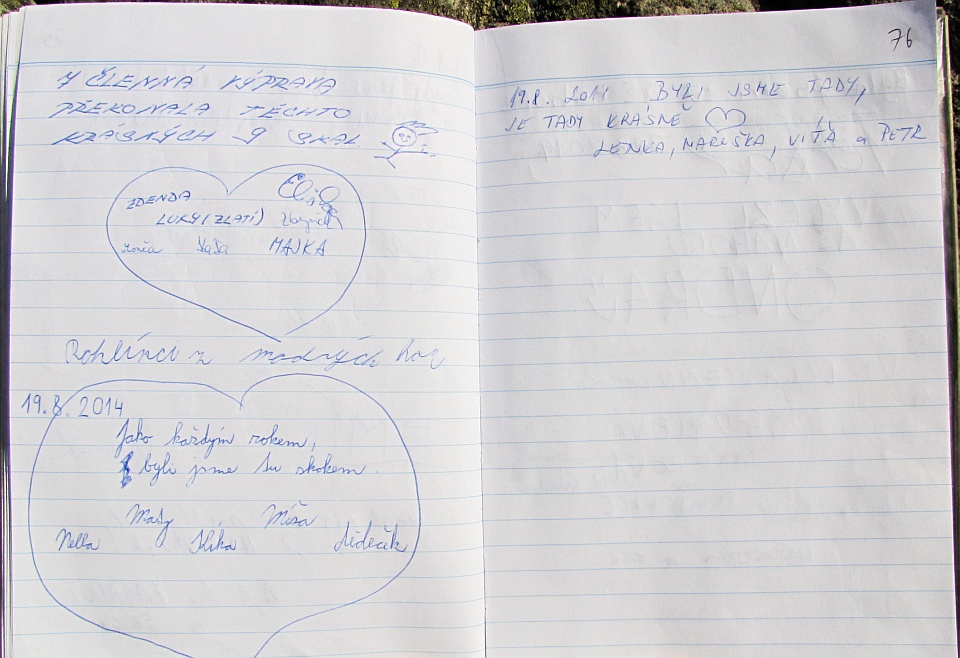 7 ČLENNÁ VÝPRAVA
PŘEKONALA TĚCHTO
KRÁSNÝCH 9 SKAL
ZDENDA Eliška
LUKY (ZLATÍ)
Vaša MAJKA
Rohlínci z modrých hor
19.8. 2014
Jako každým rokem,
byli jsme tu skokem.
Maty Míša
Nella Kika dědeček
76
19.8. 2011 BYLI JSME TADY,
JE TADY KRÁSNĚ
LENKA, MARUŠKA, VÍŤA a PETR